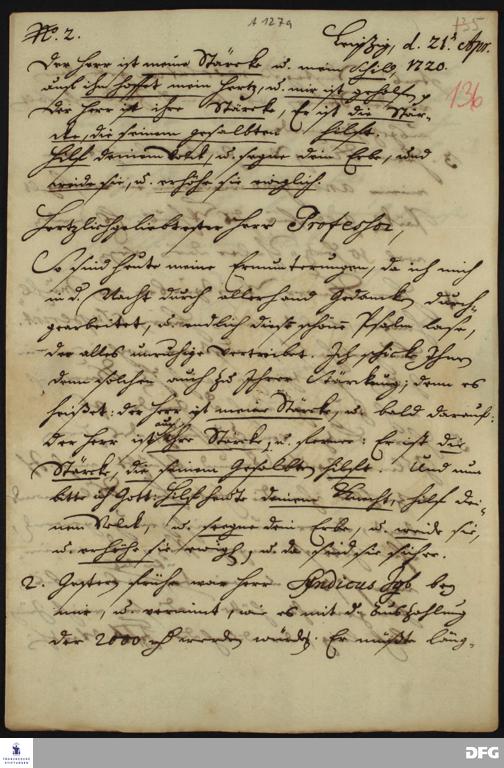 A 127a
135
136
No. 2.
Leipzig, d. 21. Apr. 1720.
Der Herr ist meine Stärcke u. mein Schild,
auf ihn hoffet mein Hertz, u. mir ist geholfen
Der Herr ist ihre Stärcke, Er ist die Stär-
cke, die seinem gesalbten hilfft.
Hilf deinem Volck, u. segne dein Erbe, und
weide sie, u. erhöhe sie ewiglich.
Hertzlichgeliebtester Herr Professor,
So sind heute meine Ermunterungen, da ich mich
in d. Nacht durch allerhand Gedancken durch-
gearbeitet, u. endlich diesen schönen Psalm lase,
der alles unruhige vertreibet. Ich schicke Ihnen
denn solchen auch zu Ihrer Stärckung; denn es
heißet: der Herr ist meine Stärcke, u. bald darauf:
der Herr ist auch Ihre Stärcke, u. ferner: Er ist die
Stärcke, die seinem Gesalbten hilfft. Und nun
bitte ich Gott: Hilf heute deinem Knecht, hilf dei-
nem Volck, u. segne dein Erbe, u. weide sie,
u. erhöhe sie ewigl., u. da sind sie sicher.
2. Gestern frühe war Herr Syndicus bey
mir, u. vernimt, wie es mit d. Auszahlung
der 2000 werden würde. Er müßte läng-
FRANCKESCHE STIFTUNGEN
DFG